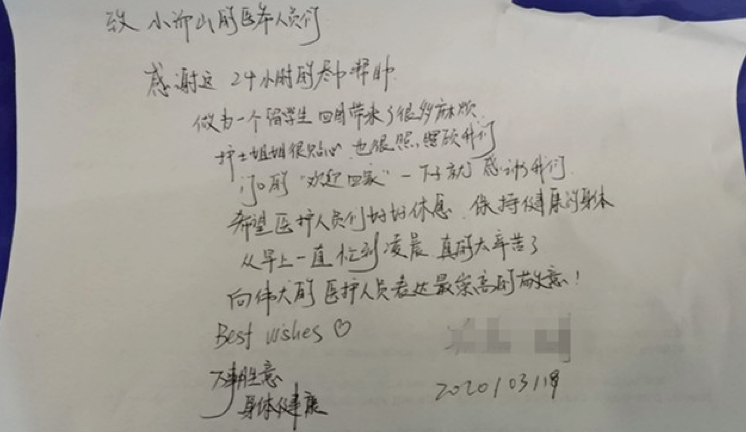 致 小汤山的医务人员们
感谢这 24小时的 帮助
做为一个留学生 回国带来了很多麻烦
护士姐姐很贴心 也很照顾我们
门口的“欢迎回家”一下子就感动了我们
希望医护人员们好好休息 保持健康的身体
从早上一直忙到凌晨 真的太辛苦了
向伟大的医护人员表达最崇高的敬意！
Best wishes ♡
万事胜意
身体健康
2020/03/18